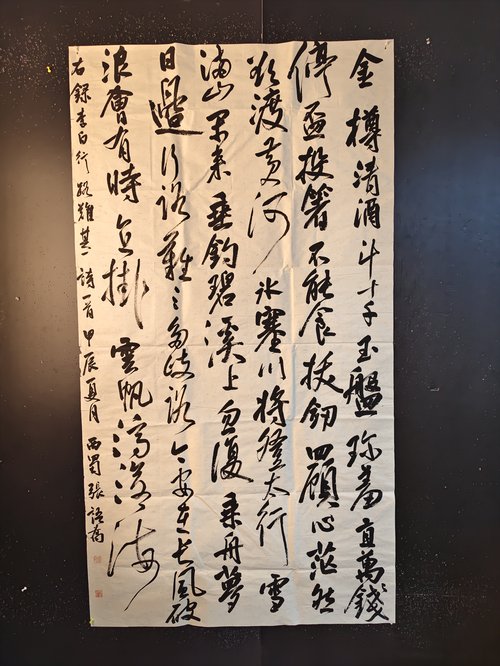 金樽清酒斗十千玉盤珍羞直萬錢
停盃投箸不能食拔劒四顧心茫然
欲渡黃河冰塞川將登太行雪
滿山閑來垂釣碧溪上忽復乘舟夢
日邊行路難々多歧路今安在長風破
浪會有時直掛雲帆濟滄海
右錄李白行路難其一詩一首甲辰夏月西蜀張